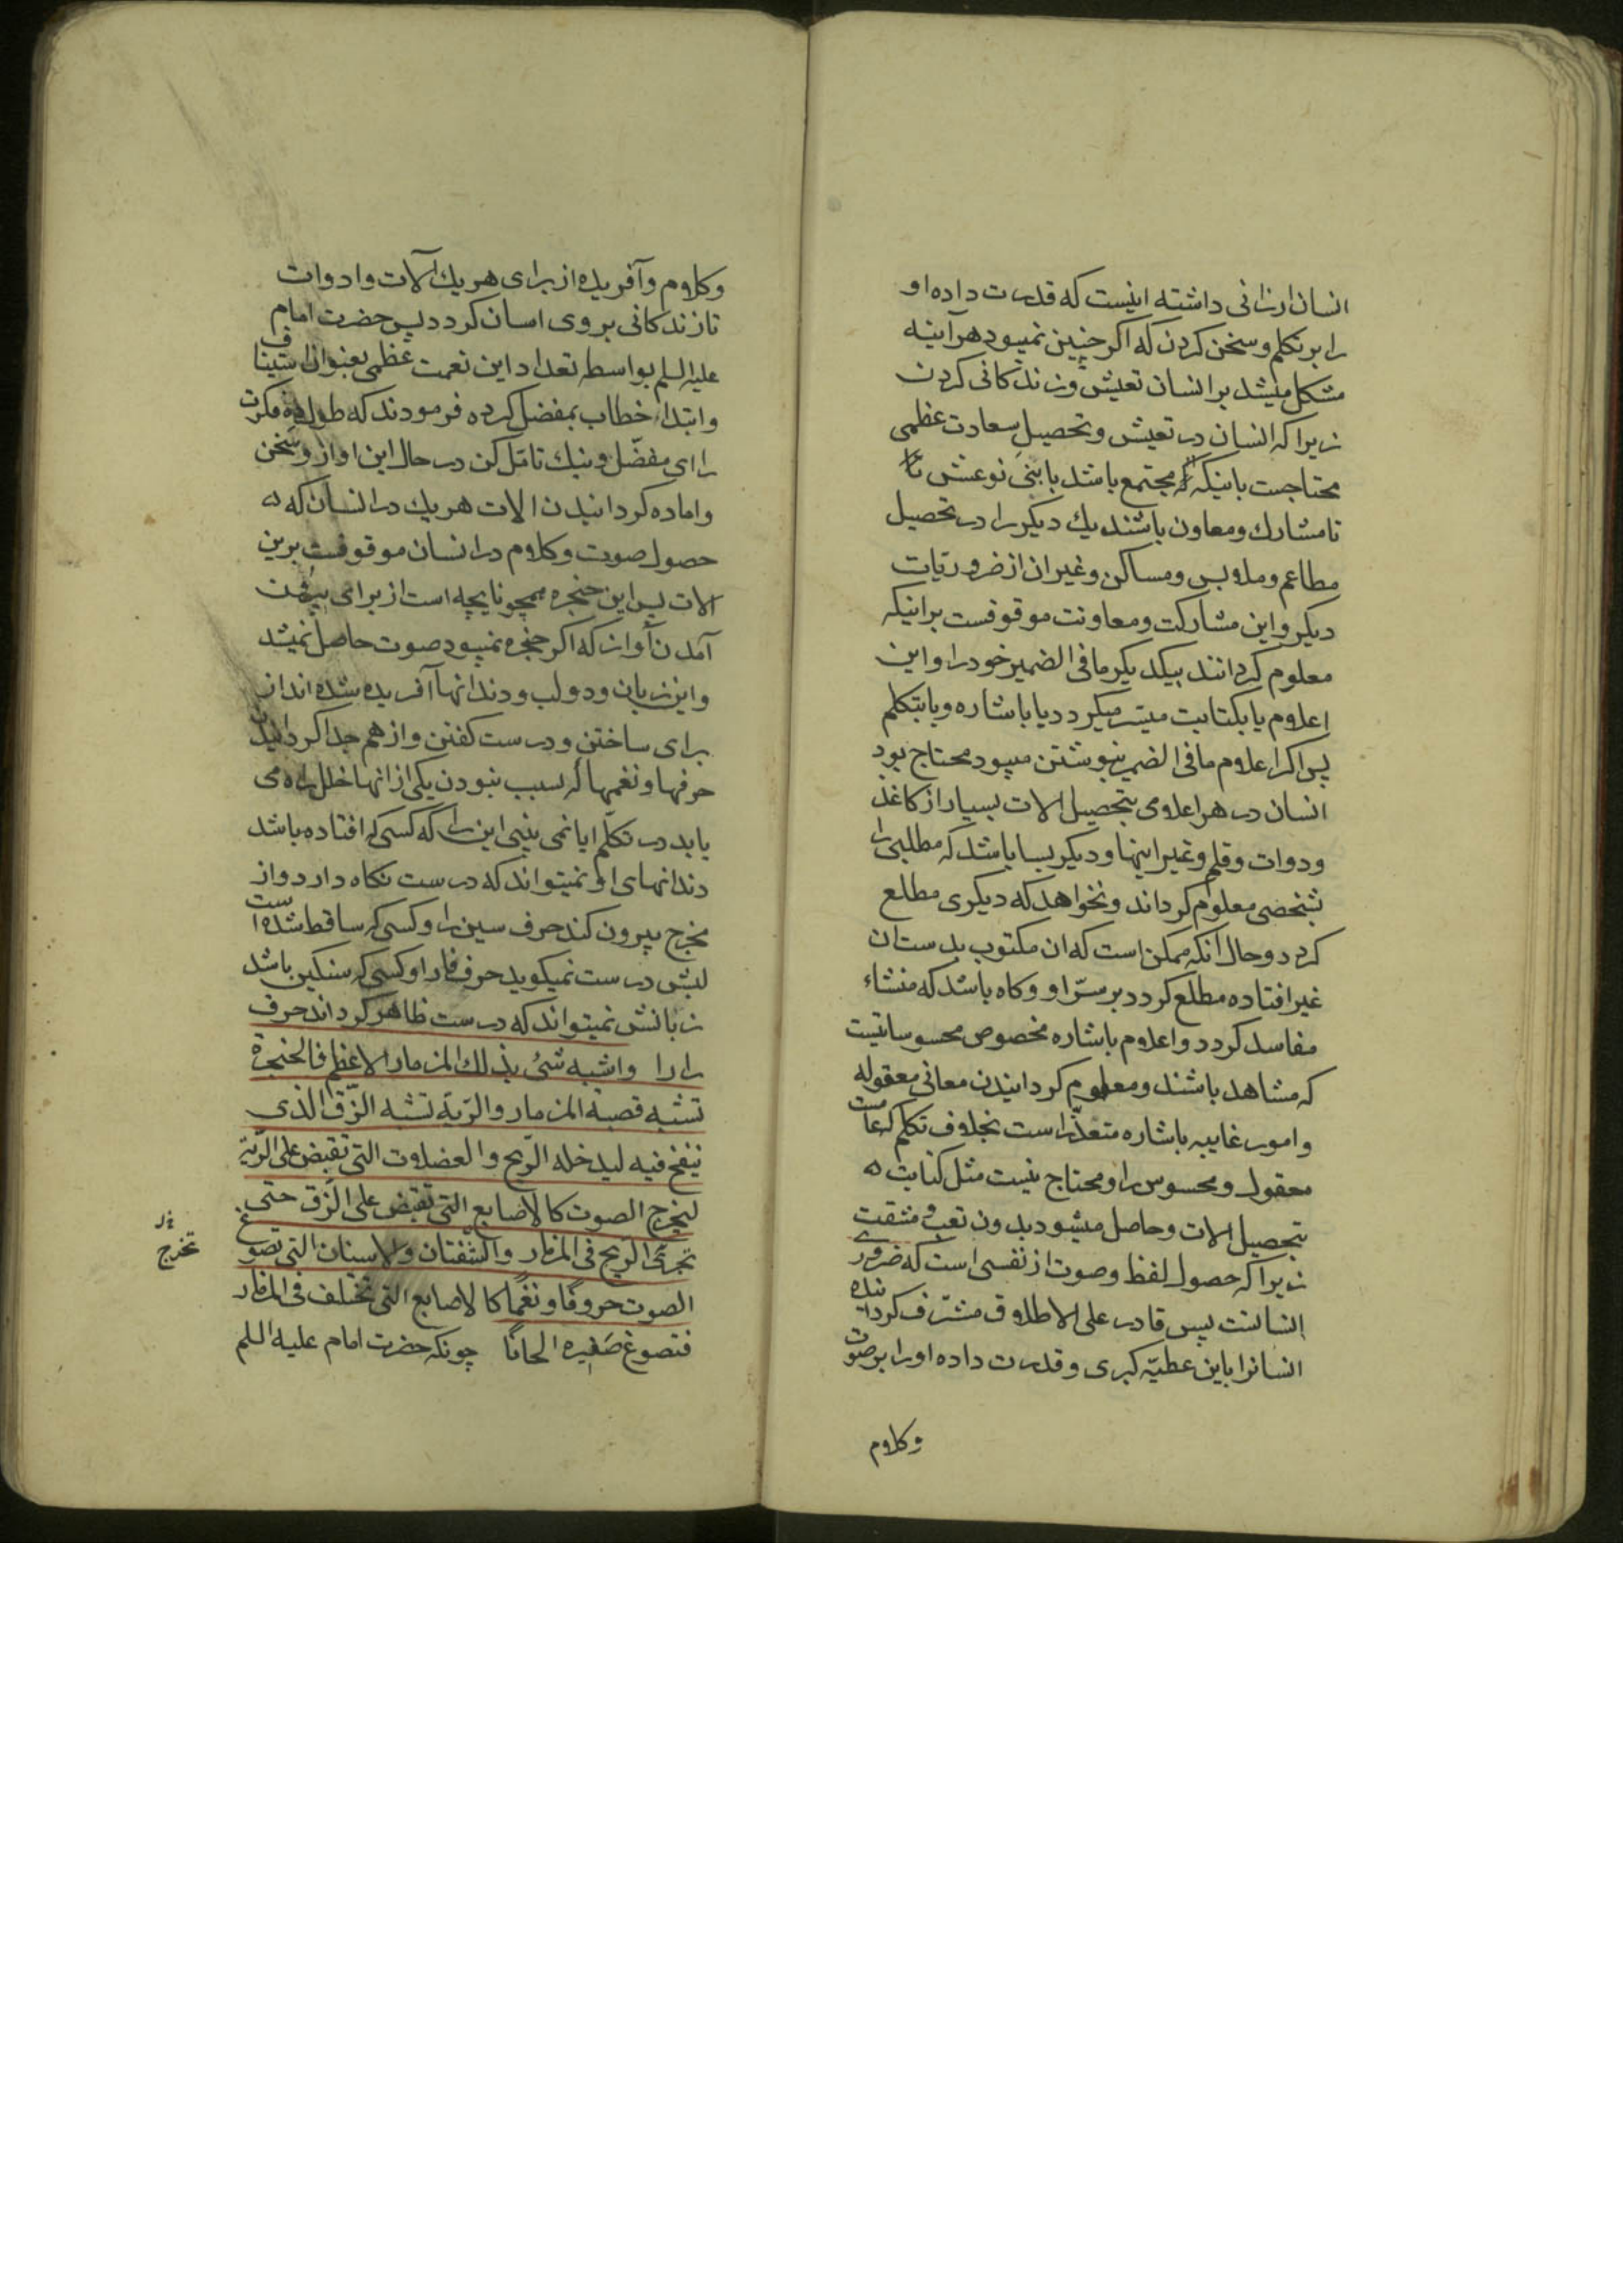 انسان ارزانی داشته اینست که قدرت داده او
را بر تکلم و سخن کردن که اکر چنین نمیبود هرآینه
مشکل میشد بر انسان تعیش و زندکانی کردن
زیرا که انسان در تعیش و تحصیل سعادت عظمی
محتاجست باینکه مجتمع باشد با بنی نوعش
تا مشارک و معاون باشند یك دیکر را در تحصیل
مطاعم و ملابس و مساکن و غیر ان از ضروریات
دیکر و این مشارکت و معاونت موقوفست بر اینکه
معلوم کردانند بیکدیکر ما فی الضمیر خود را و این
اعلام یا بکتابت میسر میکردد یا باشاره و یا بتکلم
پس اکر اعلام ما فی الضمیر بنوشتن میبود محتاج بود
انسان در هر اعلامی بتحصیل الات بسیار از کاغذ
و دوات و قلم و غیر اینها و دیکر بسا باشد که مطلبی را
شخصی معلوم کرداند و نخواهد که دیکری مطلع
کردد و حال آنکه ممکن است که ان مکتوب بدست ان
غیر افتاده مطلع کردد بر سرّ او و کاه باشد که منشاء
مفاسد کردد و اعلام باشاره مخصوص محسوساتیست
که مشاهد باشند و معلوم کردانیدن معانی معقوله
و امور غایبه باشاره متعذّر است بخلاف تکلم که عامست
معقول و محسوس را و محتاج نیست مثل کتابت
بتحصیل الات و حاصل میشود بدون تعب و مشقت
زیرا که حصول لفظ و صوت از نفسی است که ضروری
انسانست پس قادر علی الاطلاق مشرّف کردانیده
انسانرا باین عطیّه کبری و قدرت داده او را بر صوت
وکلام
وکلام و آفریده از برای هر یك آلات و ادوات
تا زندکانی بر وی اسان کردد پس حضرت امام
علیه السلم بواسطه تعداد این نعمت عظمی بعنوان استیناف
و ابتدا خطاب بمفضل کرده فرمودند که طول ده فکرت
را ای مفضّل و نیك تامّل کن در حال این اواز و سخن
و اماده کردانیدن الات هر یك در انسان که
حصول صوت و کلام در انسان موقوفست برین
الات پس این حنجره همچو نایچه است از برای بیرون
آمدن آواز که اکر حنجره نمیبود صوت حاصل نمیشد
و این زبان و دو لب و دندانها آفریده شده اند از
برای ساختن و درست کفتن و از هم جدا کردانیدن
حرفها و نغمها که بسبب نبودن یکی از انها خلل راه می
یابد در تکلّم ایا نمی بینی این را که کسی که افتاده باشد
دندانهای او نمیتواند که درست نکاه دارد و از
مخرج بیرون کند حرف سین را و کسی که ساقط شده است
لبش درست نمیکوید حرف فا را و کسی که سنکین باشد
زبانش نمیتواند که درست ظاهر کرداند حرف
را را و اشبه شئ بذلك المزمار الاعظم فالحنجرة
تشبه قصبة المزمار و الریة تشبه الزّق الذی
ینفخ فیه لیدخله الرّیح و العضلات التی تقبض علی الرّیة
لیخرج الصوت کالاصابع التی تقبض علی الزّق حتی
تجری الرّیح فی المزمار و الشفتان و الاسنان التی تصوغ
تخرج
الصوت حروفًا و نغمًا کالاصابع التی تختلف فی المزمار
فتصوغ صفیره الحانًا چونکه حضرت امام علیه السلم